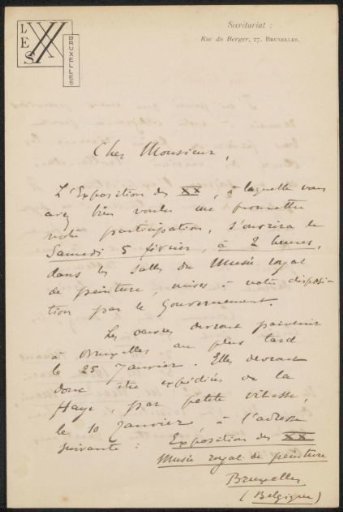 LES XX
BRUXELLES
Secrétariat :
Rue du Berger, 27, BRUXELLES.
Cher Monsieur,
L'Exposition des XX, à laquelle vous
avez bien voulu me promettre
votre participation, s'ouvrira le
Samedi 5 février, à 2 heures,
dans les salles du Musée royal
de peinture, mises à notre disposi-
tion par le Gouvernement.
Les œuvres devront parvenir
à Bruxelles au plus tard
le 25 Janvier. Elles devront
donc être expédiées de la
Haye, par petite vitesse,
le 10 Janvier, à l'adresse
suivante : Exposition des XX
Musée royal de peinture
Bruxelles
(Belgique)